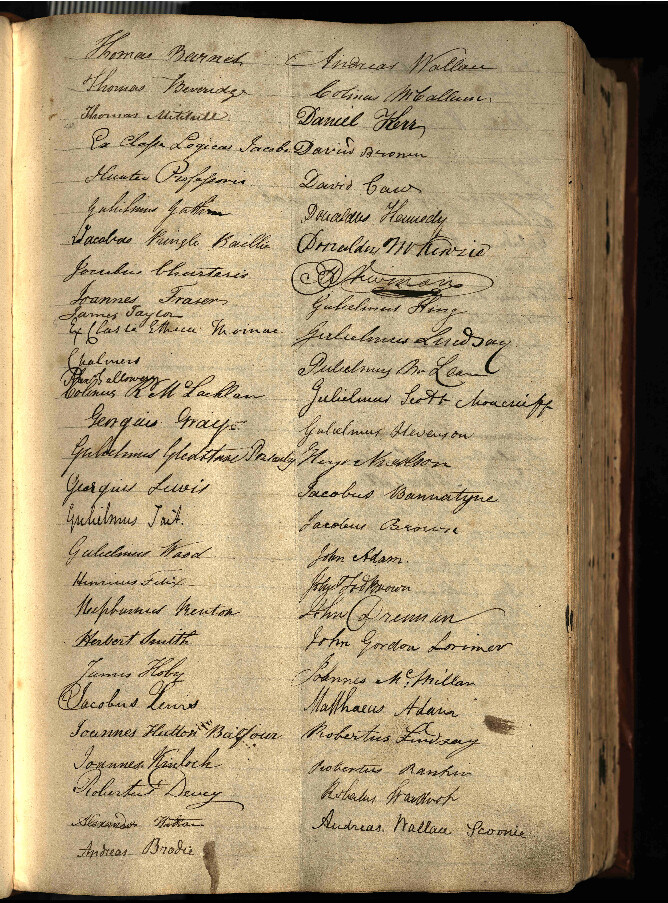 Thomas Barnet
Thomas Beveridge
Thomas Mitchell
Ex Classe Logicae Jacobi
Hunter Professoris
Gulielmus
Jacobus Pringle Baillie
Jacobus Charteris
Joannes Fraser
James Taylor
Ex Classe Ethica Thomae
Chalmers
Galloway
Colinus R McLachlan
Georgius Craig
Gulielmus Gladstone
Georgius Lewis
Gulielmus Tait.
Gulielmus Wood
Henricus Felix
Hepburnus Renton
Herbert Smith
James Hoby
Jacobus Lewis
Joannes Hutton Balfour
Joannes Kinloch
Robertus Dewey
Andreas Brodie
Andreas Wallace
Colinus McCallum
Daniel Kerr
David Brown
David Caw
Donaldus Kennedy
Donaldus McKenzie
Gulielmus King
Gulielmus Lindsay
Gulielmus McLean
Gulielmus Scott Moncrieff
Gulielmus Stevenson
Jacobus Bannatyne
Jacobus Brown
John Adam.
John Drennan
John Gordon Lorimer
Joannes McMillan
Matthaeus Adam
Robertus Lindsay
Robertus Rankin
Andreas Wallace Scoonie